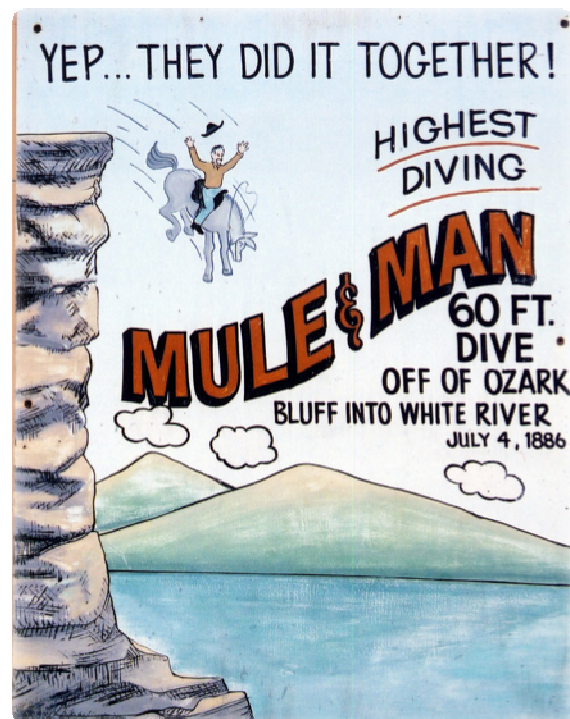 YEP...THEY DID IT TOGETHER!
HIGHEST
DIVING
MULE & MAN
60 FT.
DIVE
OFF OF OZARK
BLUFF INTO WHITE RIVER
JULY 4, 1886